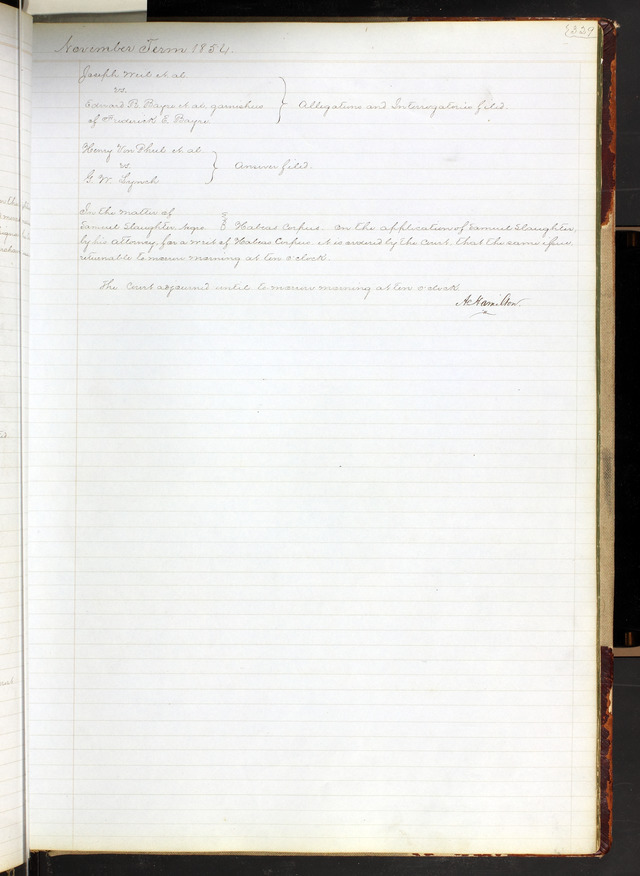 329
November Term 1854.
Joseph Weil et al.
vs.
Edward B. Bayre et al. garnishees
of Frederick E. Bayre
Allegations and Interrogatories filed.
Henry Von Phul et al.
vs
G. W. Lynch
Answer filed.
In the matter of
Samuel Slaughter, Habeas Corpus. On the application of Samuel Slaughter,
by his Attorney, for a writ of Habeas Corpus it is ordered by the Court, that the same issue,
returnable to morrow morning at ten o'clock.
The Court adjourned until to morrow morning at ten o'clock
A Hamilton.